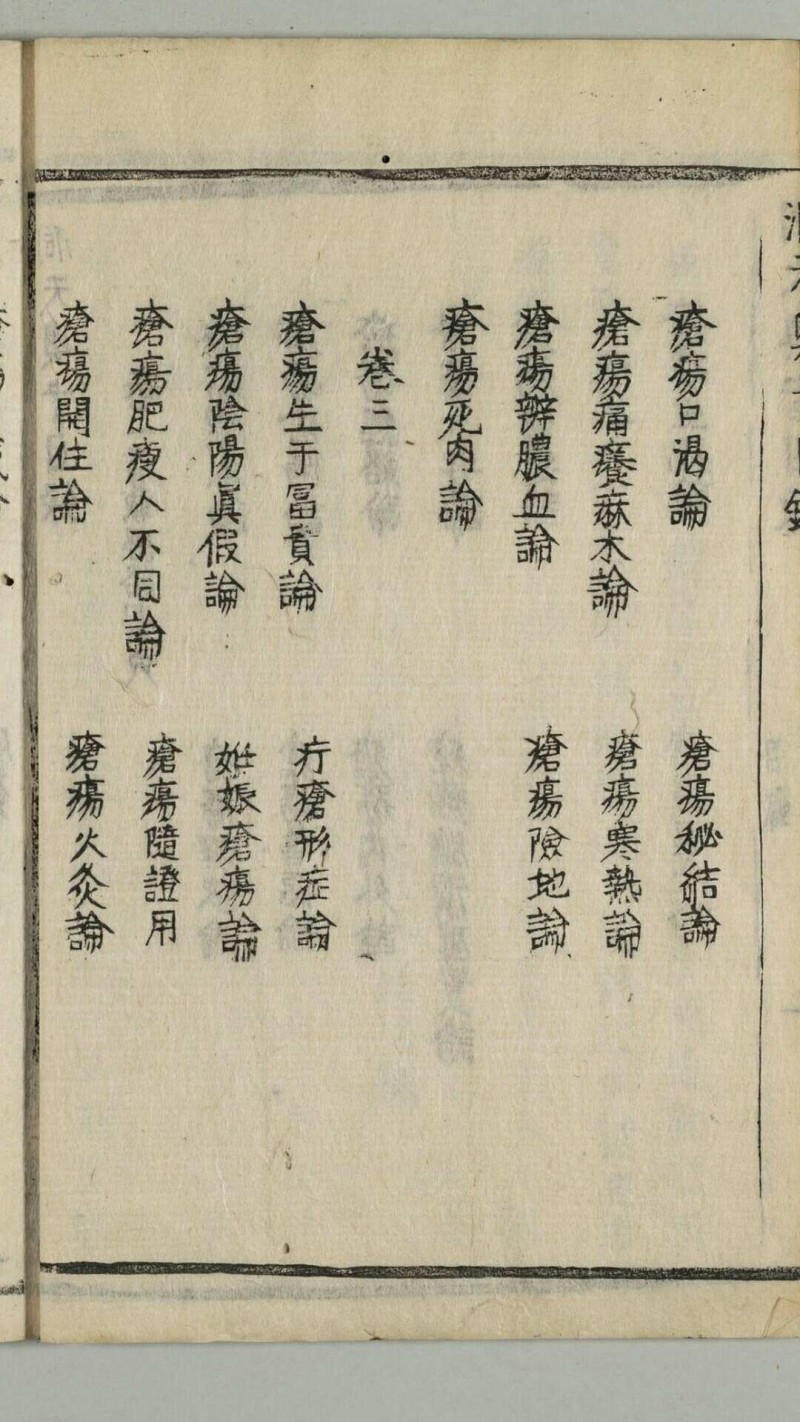 瘡瘍口渴論
瘡瘍秘結論
瘡瘍痛癢痳木論
瘡瘍寒熱論
瘡瘍辨膿血論
瘡瘍險地論
瘡瘍死肉論
卷三
瘡瘍生于冨貴論
疔瘡形症論
瘡瘍陰陽眞假論
姙娠瘡瘍論
瘡瘍肥瘦人不同論
瘡瘍隨證用
瘡瘍開住論
瘡瘍火灸論